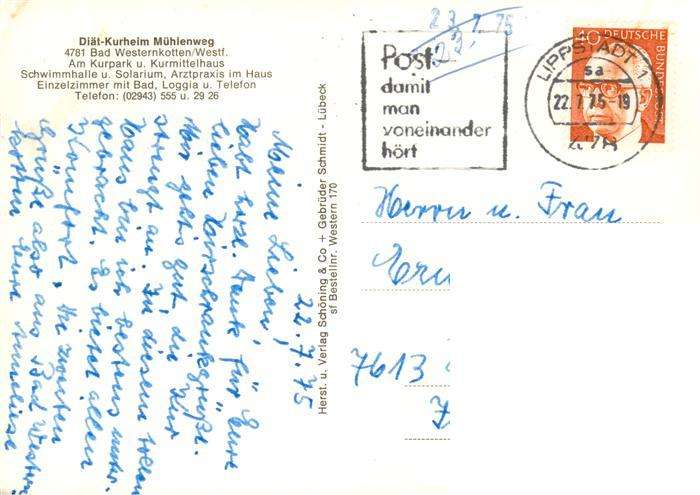 Diät-Kurheim Mühlenweg
4781 Bad Westernkotten/Westf.
Am Kurpark u. Kurmittelhaus
Schwimmhalle u. Solarium, Arztpraxis im Haus
Einzelzimmer mit Bad, Loggia u. Telefon
Telefon: (02943) 555 u. 29 26
22.7.75
Meine Lieben!
Habt herzl. Dank für Eure
lieben Kurschrankgrüße.
Mir gehts gut, die Kur
strengt an. In diesem tollen
Haus bin ich bestens unter-
gebracht. Es bietet allen
Komfort.
Grüße also aus Bad Western-
kotten Eure Anneliese
Herst. u. Verlag Schöning & Co + Gebrüder Schmidt - Lübeck
sf Bestellnr. Western 170
23.7.75
Post
damit
man
voneinander
hört
LIPPSTADT 1
sa
22.7.75-19
478
40 DEUTSCHE BUNDESPOST
Herrn u. Frau
7613